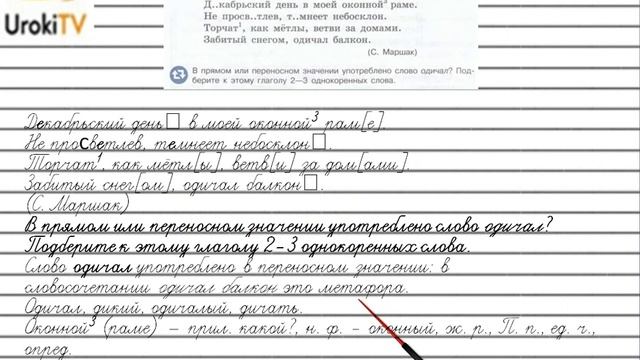 UrokiTV
Д..кабрьский день в моей оконной³ раме.
Не просв..тлев, т..мнеет небосклон.
Торчат¹, как мётлы, ветви за домами.
Забитый снегом, одичал балкон.
(С. Маршак)
В прямом или переносном значении употреблено слово одичал? Под-
берите к этому глаголу 2—3 однокоренных слова.
Декабрьский день□ в моей оконной³ рам[е].
Не проСветлев, темнеет небосклон□.
Торчат¹, как мётл[ы], ветв[и] за дом[ами].
Забитый снег[ом], одичал балкон□.
(С. Маршак)
В прямом или переносном значении употреблено слово одичал?
Подберите к этому глаголу 2-3 однокоренных слова.
Слово одичал употреблено в переносном значении: в
словосочетании одичал балкон это метафора.
Одичал, дикий, одичалый, дичать.
Оконной³ (раме) – прил. какой?, н. ф. – оконный, ж. р., П. п., ед. ч.,
опред.